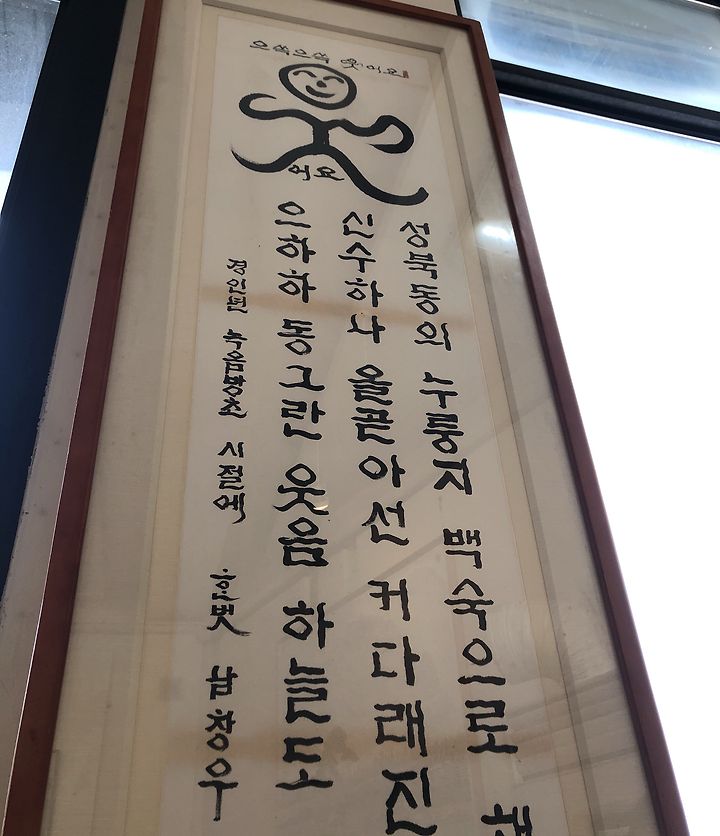 으쓱으쓱 웃어요
어요
성북동의 누룽지 백숙으로
신수하나 올곧아선 커다래진
으하하 동그란 웃음 하늘도
경인년 녹음방초 시절에 남창우